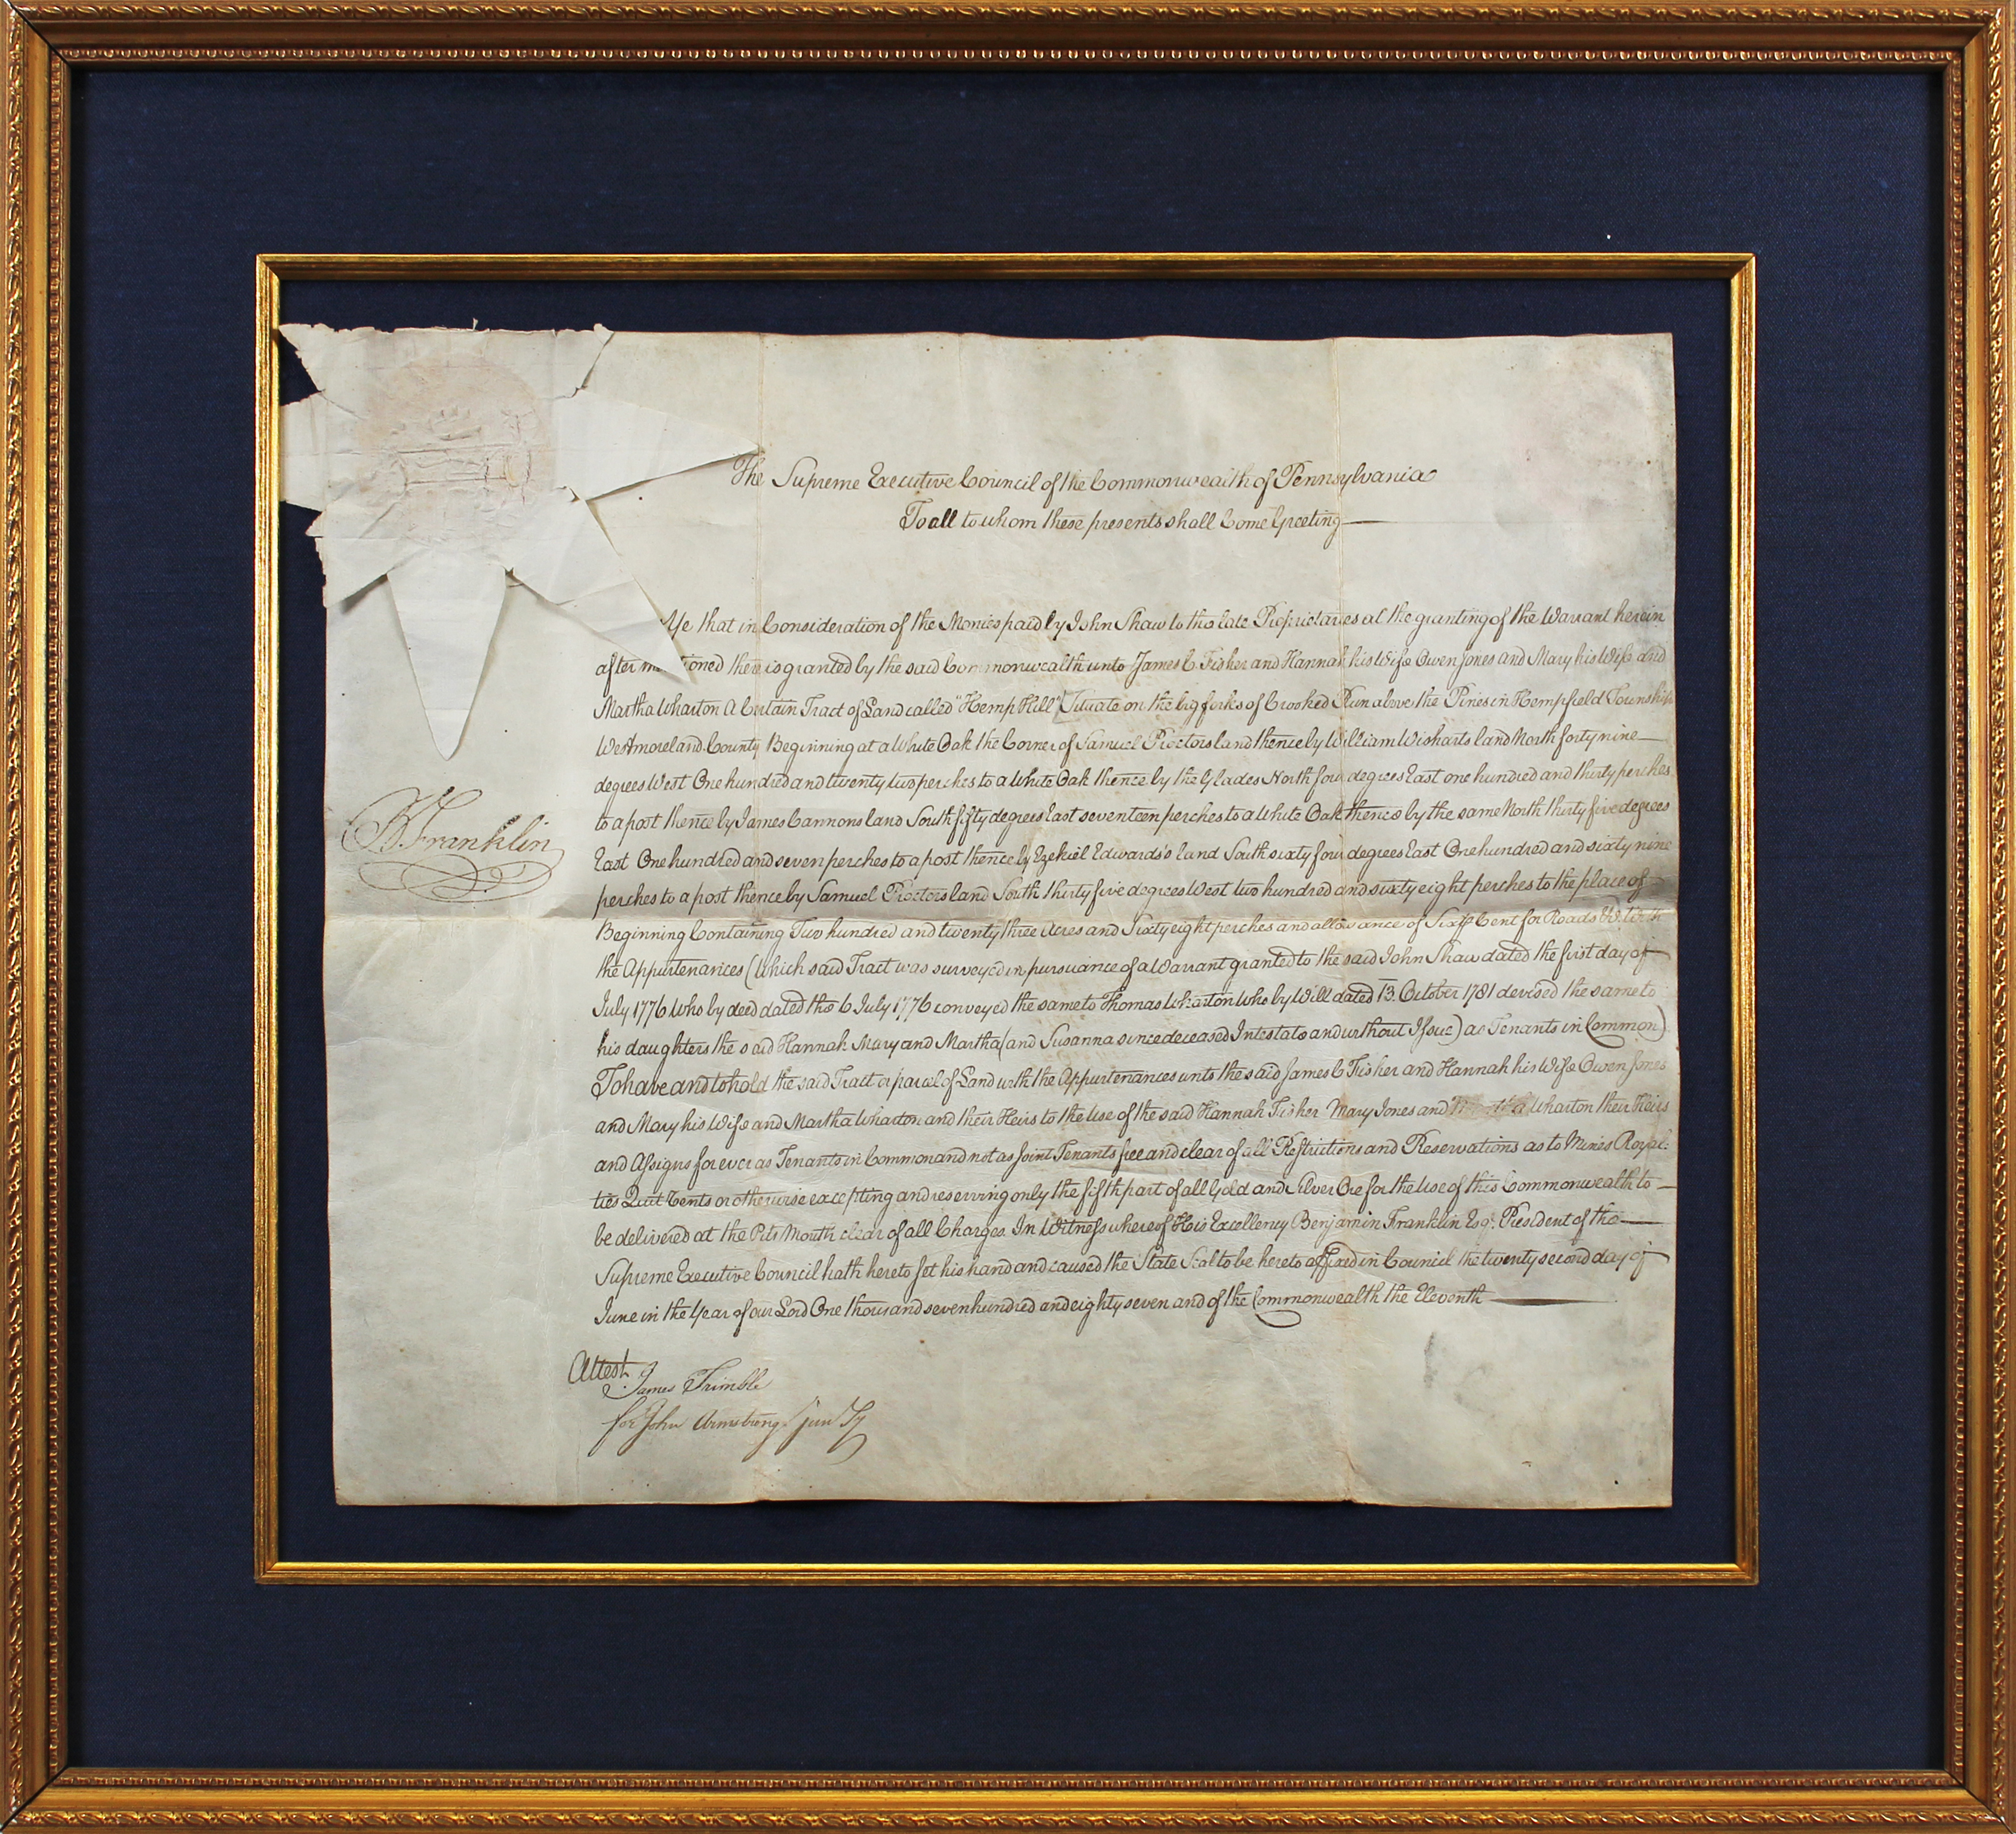 The Supreme Executive Council of the Commonwealth of Pennsylvania
To all to whom these presents shall Come Greeting
Ye that in Consideration of the Monies paid by John Shaw to the late Proprietaries at the granting of the Warrant herein
after mentioned there is granted by the said Commonwealth unto James C. Fisher and Hannah his Wife Owen Jones and Mary his Wife and
Martha Wharton A Certain Tract of Land called "Hemp Hill" Situate on the big forks of Crooked Run above the Pines in Hempfield Township
Westmoreland County Beginning at a White Oak the Corner of Samuel Proctors land thence by William Wisharts land North forty nine
degrees West One hundred and twenty two perches to a White Oak thence by the Glades North four degrees East one hundred and thirty perches
to a post thence by James Cannons land South fifty degrees East seventeen perches to a White Oak thence by the same North thirty five degrees
East One hundred and seven perches to a post thence by Ezekiel Edwards's land South sixty four degrees East One hundred and sixty nine
perches to a post thence by Samuel Proctors land South thirty five degrees West two hundred and sixty eight perches to the place of
Beginning Containing Two hundred and twenty three Acres and Sixty eight perches and allowance of Six P Cent for Roads &c With
the Appurtenances (Which said Tract was surveyed in pursuance of a Warrant granted to the said John Shaw dated the first day of
July 1776 Who by deed dated the 6 July 1776 conveyed the same to Thomas Wharton Who by Will dated 13. October 1781 devised the same to
his daughters the said Hannah Mary and Martha (and Susanna since deceased Intestate and without Issue) as Tenants in Common)
To have and to hold the said Tract or parcel of Land with the Appurtenances unto the said James C Fisher and Hannah his Wife Owen Jones
and Mary his Wife and Martha Wharton and their Heirs to the Use of the said Hannah Fisher Mary Jones and Martha Wharton their Heirs
and Assigns for ever as Tenants in Common and not as Joint Tenants free and clear of all Restrictions and Reservations as to Mines Royal-
ties Quit Rents or otherwise excepting and reserving only the fifth part of all Gold and Silver Ore for the Use of this Commonwealth to
be delivered at the Pits Mouth clear of all Charges. In Witness whereof His Excellency Benjamin Franklin Esqr. President of the
Supreme Executive Council hath hereto set his hand and caused the State Seal to be hereto affixed in Council the twenty second day of
June in the Year of our Lord One thousand seven hundred and eighty seven and of the Commonwealth the Eleventh
B Franklin
Attest
James Trimble
for John Armstrong Junr Sy